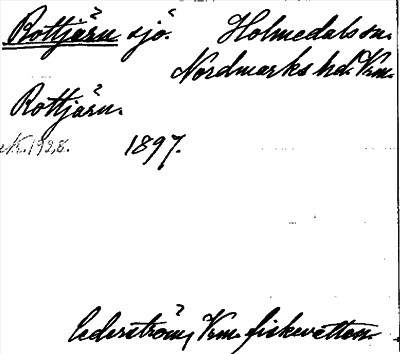 Rottjärn sjö. Holmedals sn.
Nordmarks hd. Vrm.
Rottjärn.
1897.
Cederström, Vrm. fiskevatten.